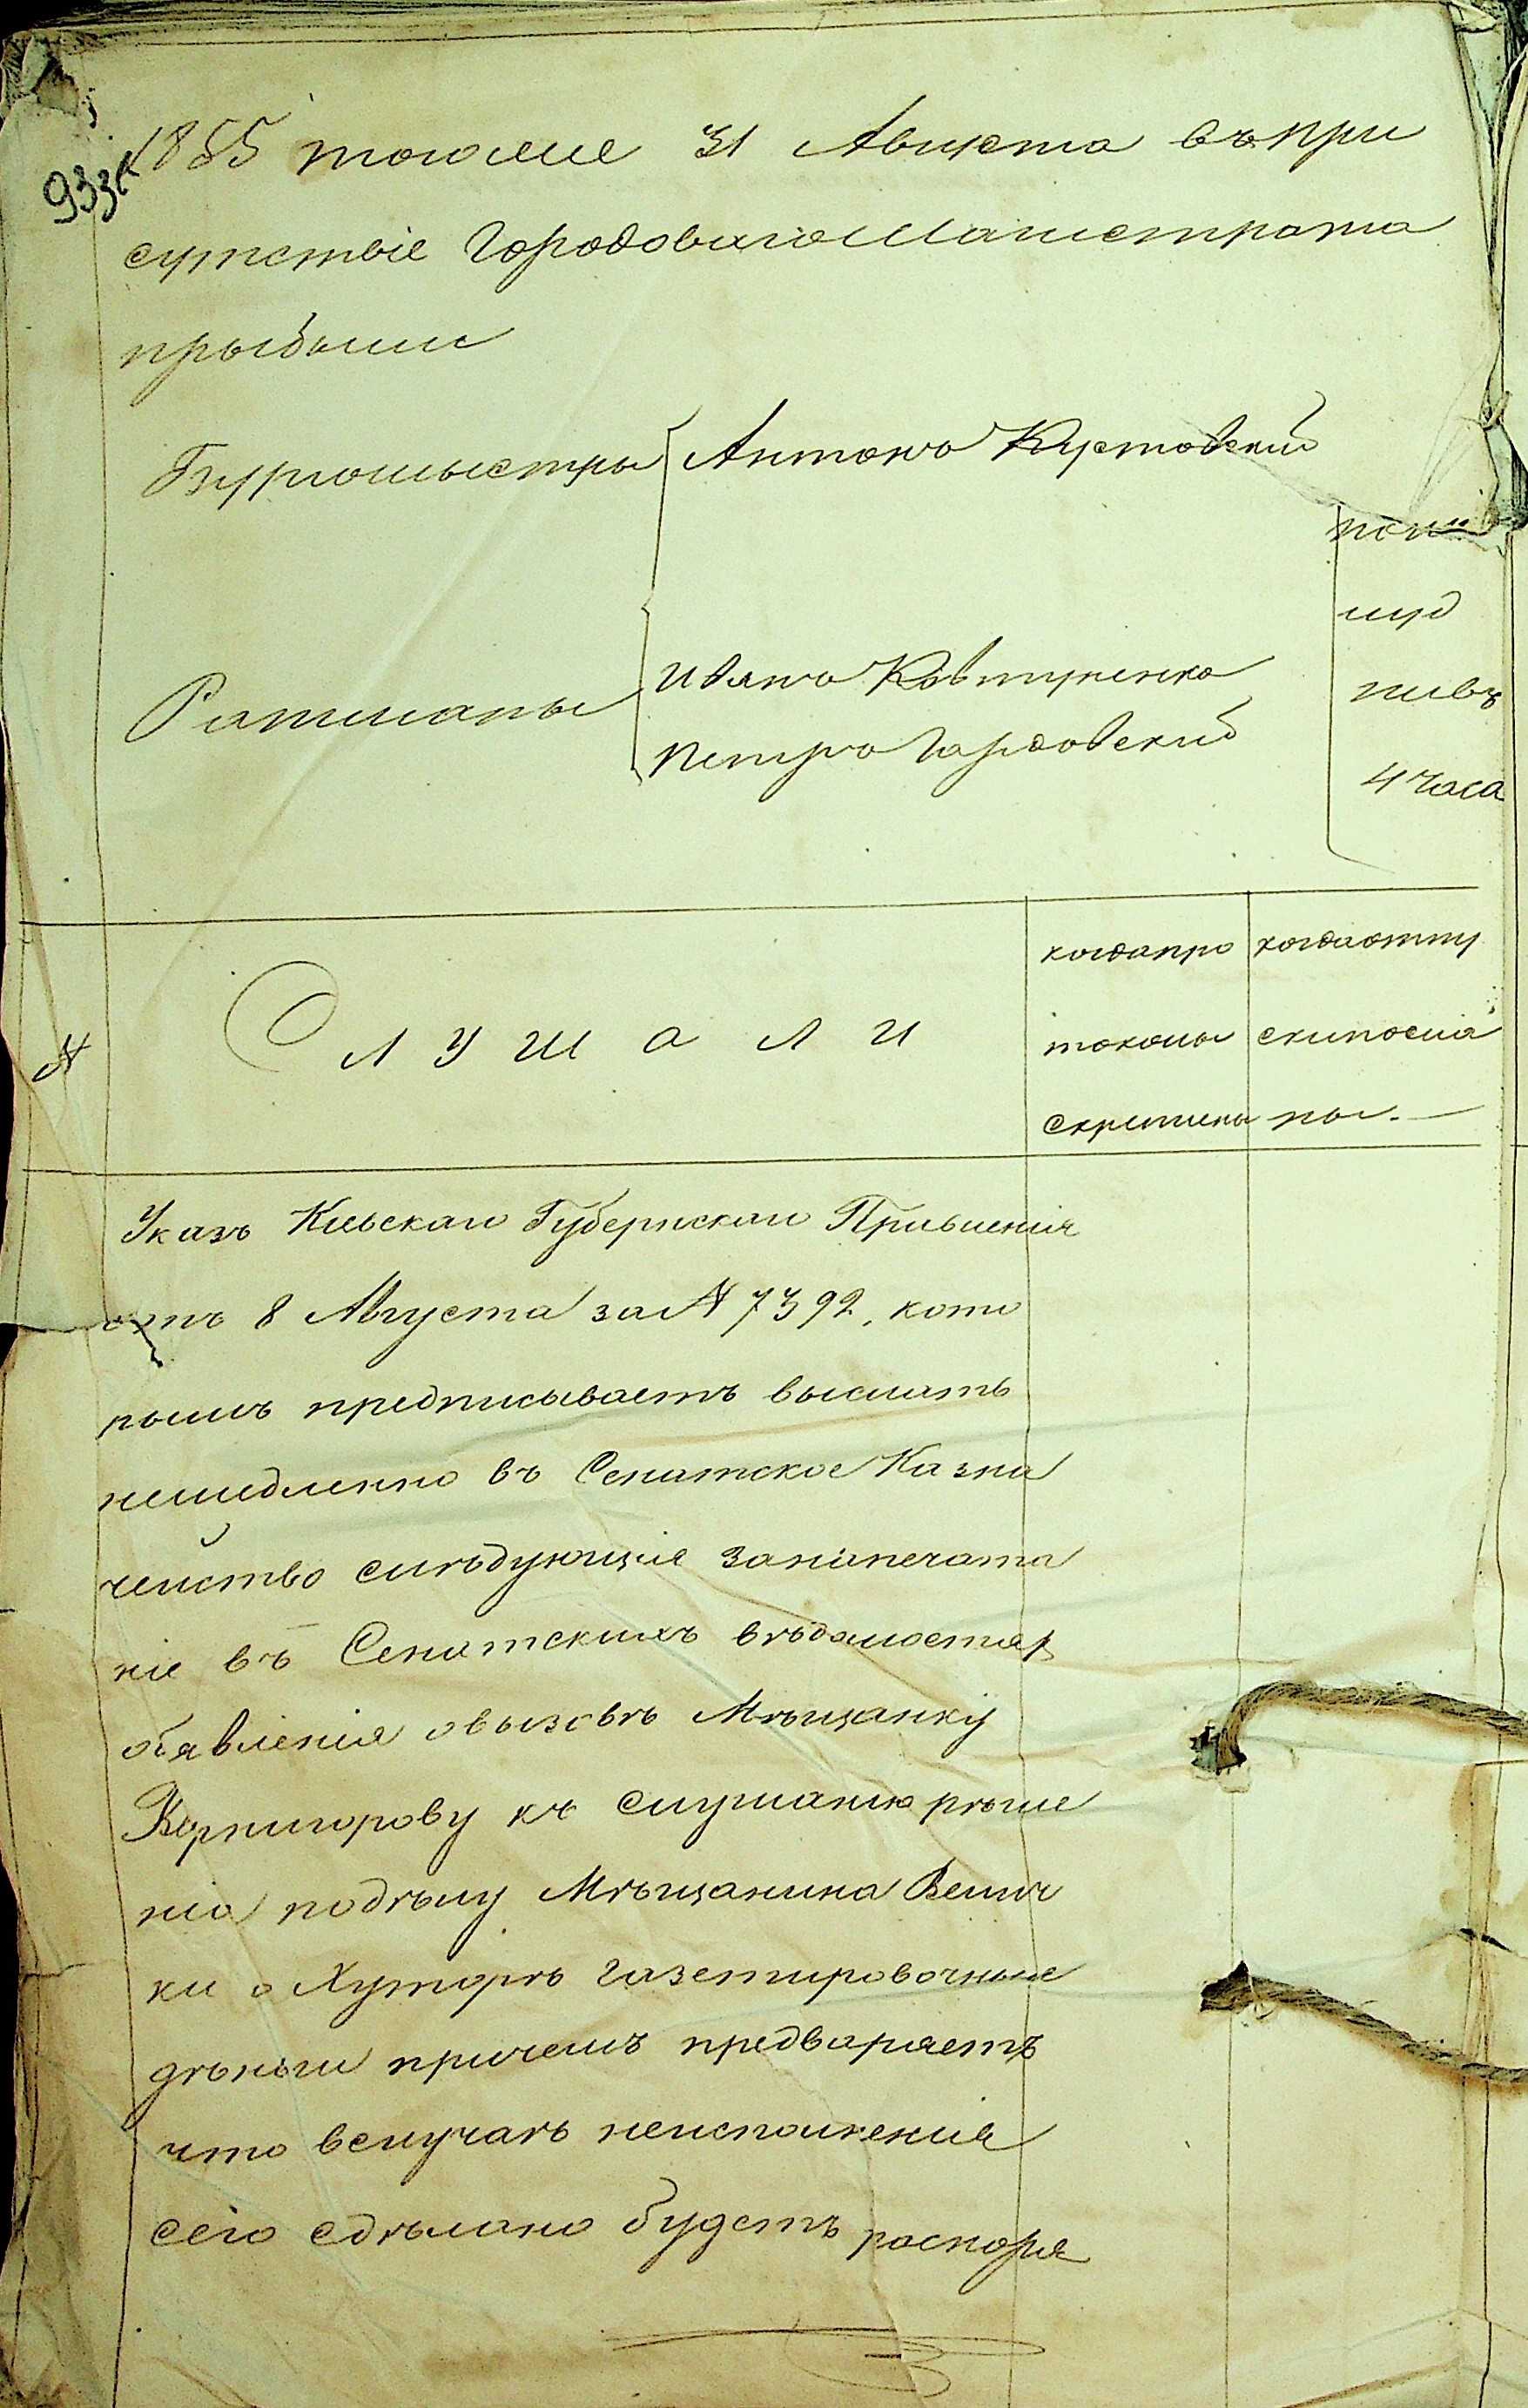 933
1855 того же 31 Августа въ при
сутствіе Городоваго Магистрата
прыбыли
Бургомыстры Антонъ Кустовский
Ратманы Иванъ Ковтуненко
Петръ Гордовский
пол
пуд
пивъ
4 часа
№ Слушали
когда про
токолы
скреплены
когда отпу
ски посла
ны.
Указъ Кіевскаго Губернскаго Правленія
отъ 8 Августа за № 7392, кото
рымъ предписываетъ выслать
немедленно въ Сенатское Казна
чейство слѣдующія за напечата
ніе въ Сенатскихъ вѣдомостях
объявленія о вызовѣ Мѣщанку
Вернигорову къ слушанію рѣше
нія по дѣлу Мѣщанина Велич
ки о Хуторѣ газетировочные
дѣньги причемъ предваряетъ
что вслучаѣ неисполнения
сего сдѣлано будетъ распоря